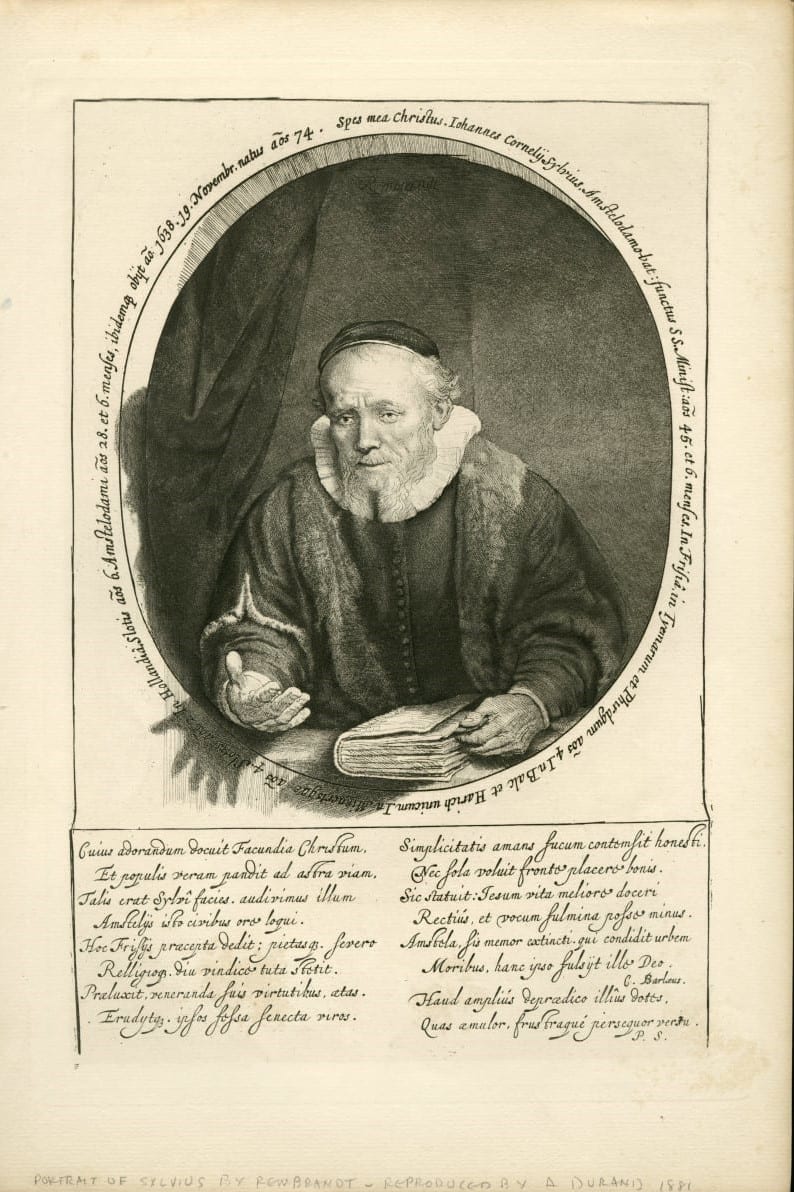 Spes mea Christus. Iohannes Cornelÿ Sylvius, Amstelodamo-bat: functus SS. Minist: aōs 45. et 6. menses. In Frisiâ in Tyemarum et Phirdgum aōs 4. In Balc et Harich unicum. In Minnertsgae aōs 4. In Hollandiâ: Slotis aōs 6. Amstelodami aōs 28. et 6. menses, ibidemqꝫ obÿt aō. 1638. 19. Novembr. natus aōs 74.
Rembrandt
Cuius adorandum docuit Facundia Christum,
Et populis veram pandit ad astra viam,
Talis erat Sylvî facies. audivimus illum
Amstelÿs isto civibus ore loqui.
Hoc Frisÿs præcepta dedit; pietasqꝫ. severo
Relligioqꝫ. diu vindice tuta stetit.
Præluxit, veneranda suis virtutibus, ætas.
Erudytqꝫ. ipsos fessa senecta viros.
Simplicitatis amans fucum contemsit honesti,
Nec sola voluit fronte placere bonis.
Sic statuit: Iesum vita meliore doceri
Rectiùs, et vocum fulmina posse minus.
Amstela, sis memor extincti qui condidit urbem
Moribus, hanc ipso fulsÿt ille Deo.
C. Barlæus.
Haud ampliùs deprædico illius dotes,
Quas æmulor, frustraque persequor versu.
P. S.
PORTRAIT OF SYLVIUS BY REMBRANDT - REPRODUCED BY A DURAND 1881